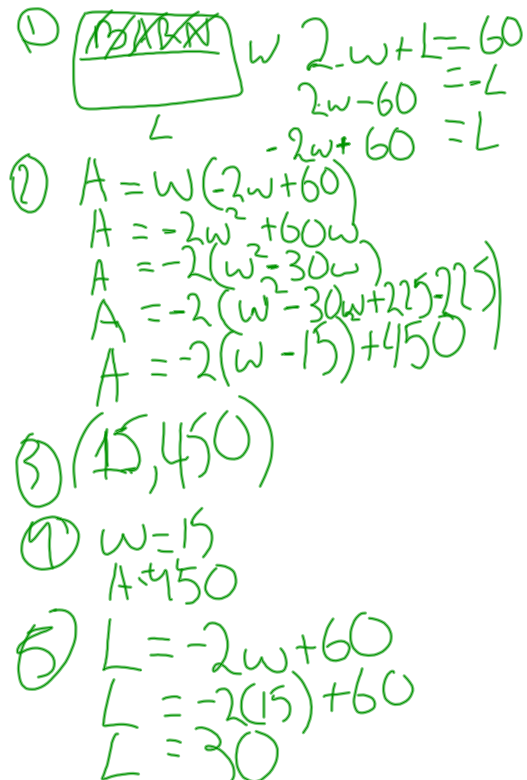 ① BARN W 2w+L=60
2w-60=-L
L -2w+60=L
② A=W(-2w+60)
A=-2w²+60w
A=-2(w²-30w)
A=-2(w²-30w+225-225)
A=-2(w-15)+450
③ (15,450)
④ W=15
A=450
⑤ L=-2w+60
L=-2(15)+60
L=30